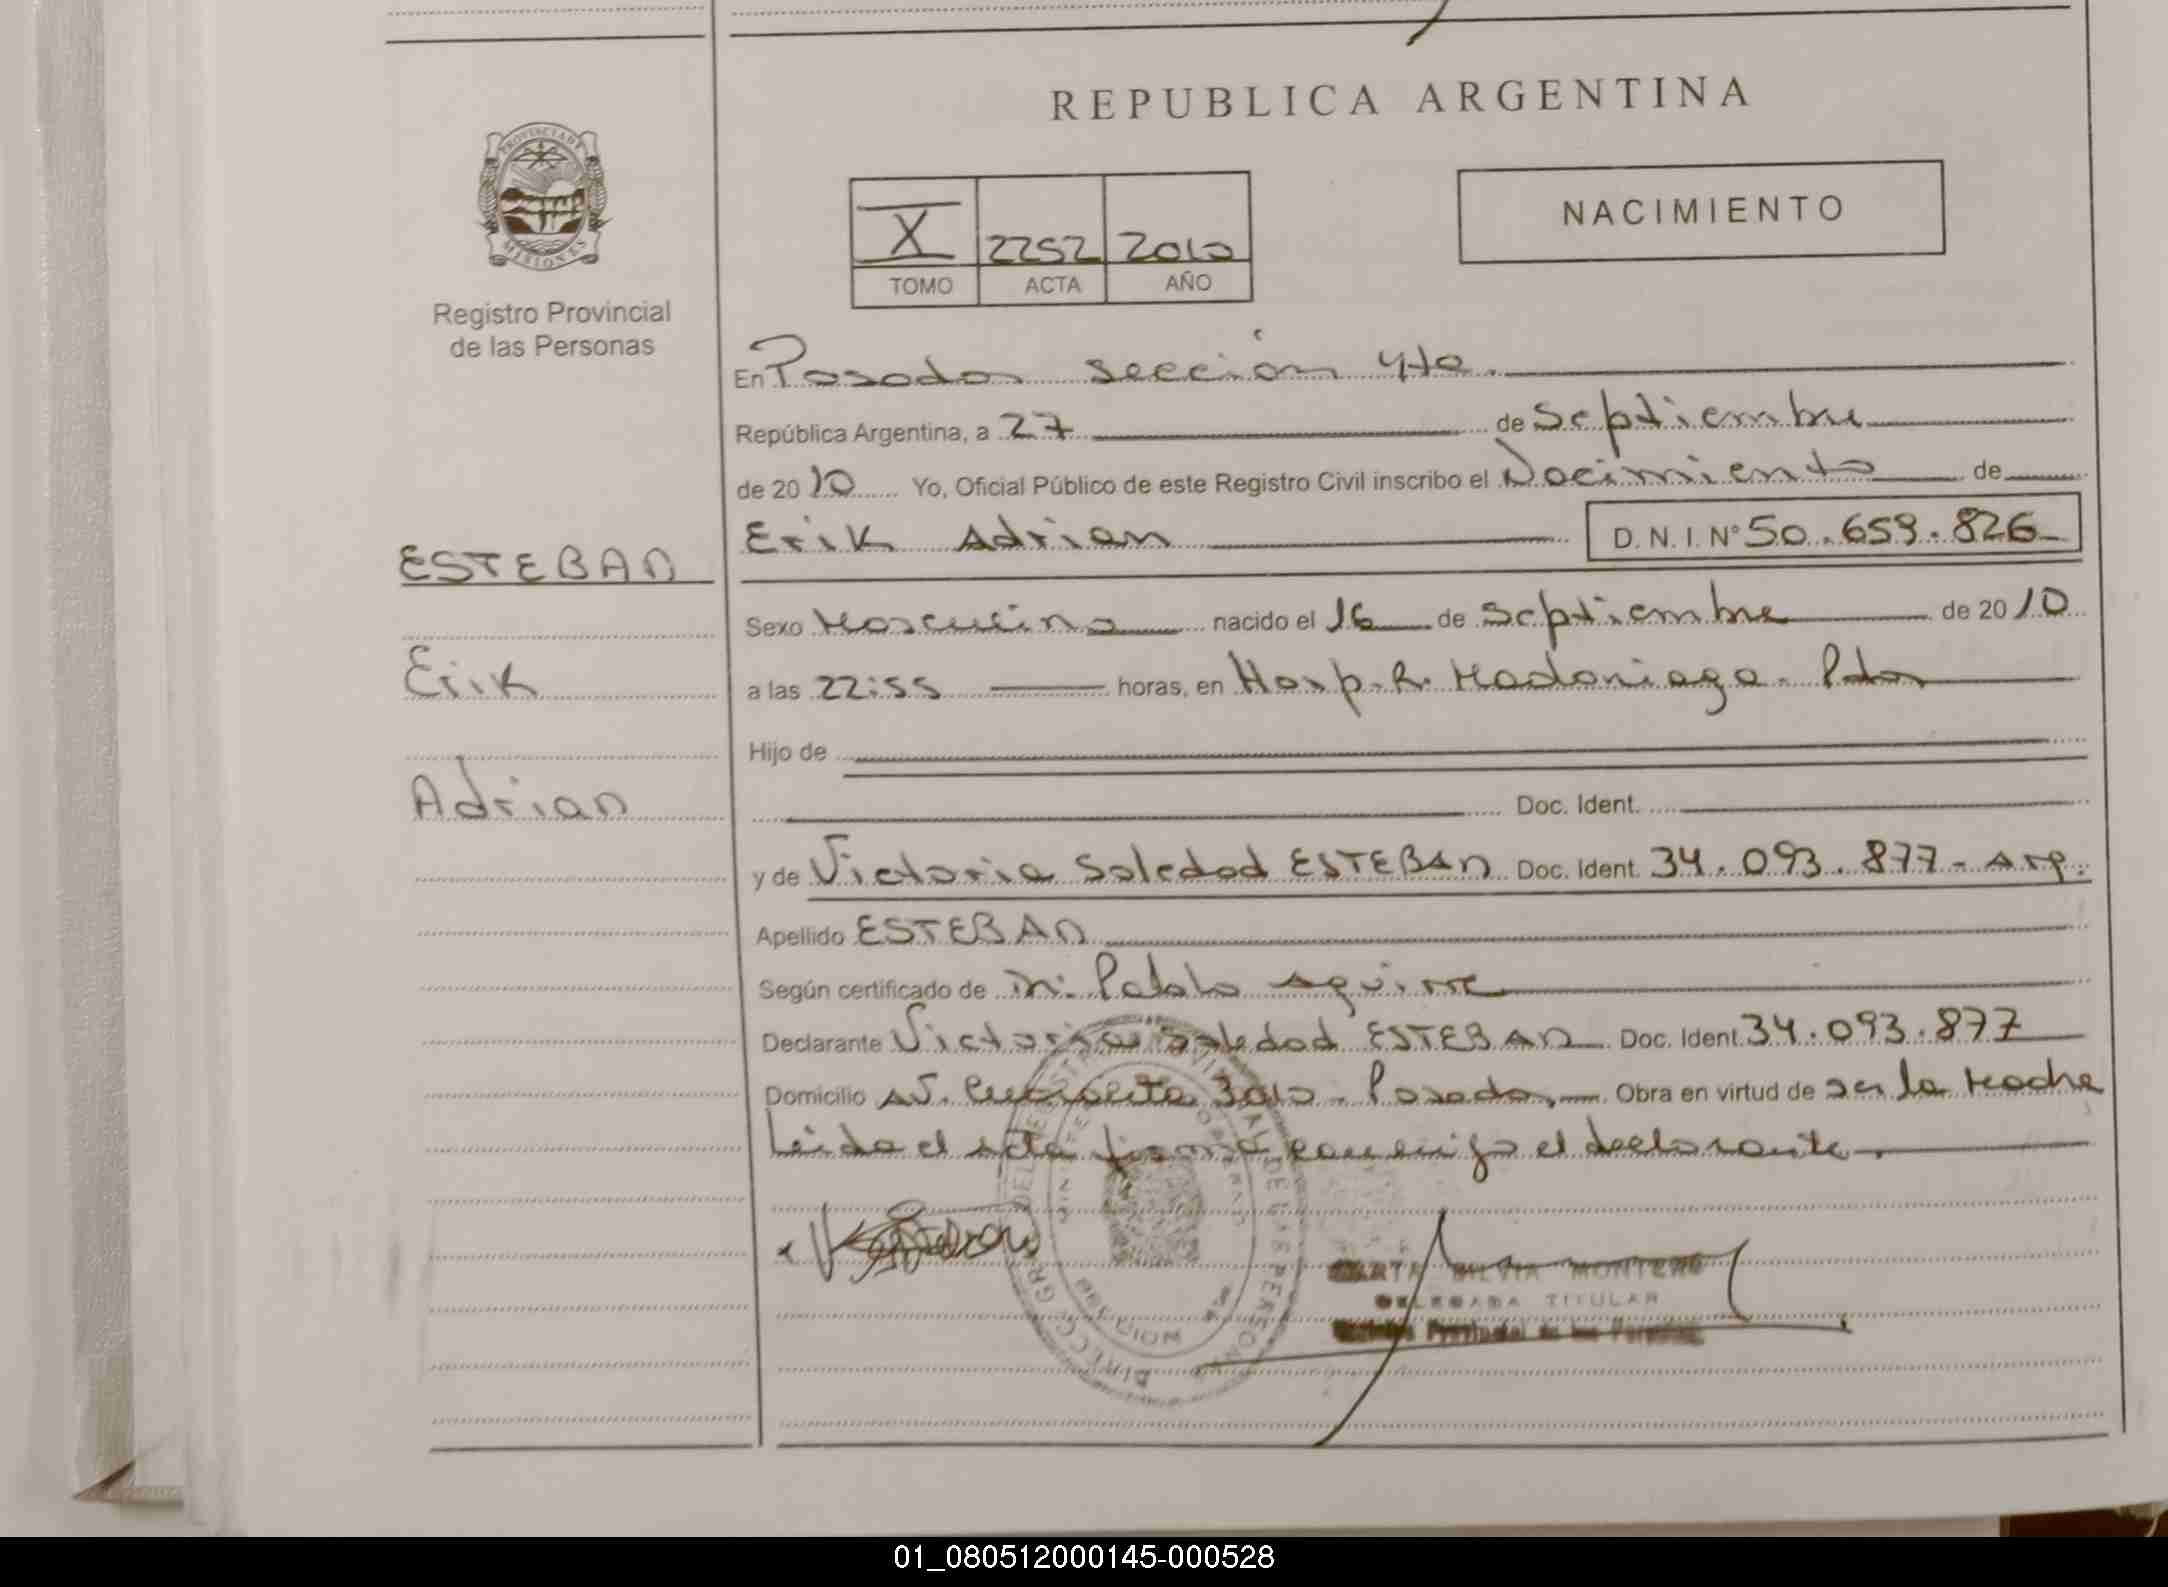 REPUBLICA ARGENTINA
PROVINCIA DE
MISIONES
Registro Provincial
de las Personas
X 2252 2010
TOMO ACTA AÑO
NACIMIENTO
En Posadas sección 4ta.
República Argentina, a 27 de Septiembre
de 2010 Yo, Oficial Público de este Registro Civil inscribo el Nacimiento de
Erik Adrian D.N.I. N° 50.659.826
ESTEBAN
Sexo Masculino nacido el 16 de Septiembre de 2010
Erik
a las 22:55 horas, en Hosp. R. Madariaga. Pdas
Hijo de
Adrian
Doc. Ident.
y de Victoria Soledad ESTEBAN Doc. Ident. 34.093.877- Arg.
Apellido ESTEBAN
Según certificado de Dr. Pablo Aguirre
Declarante Victoria Soledad ESTEBAN Doc. Ident. 34.093.877
Domicilio Av. 3010 - Posadas, Obra en virtud de ser la Madre
Leida el acta firma conmigo el declarante.
MARTA SILVIA MONTERO
DELEGADA TITULAR
Registro Provincial de las Personas
01_080512000145-000528